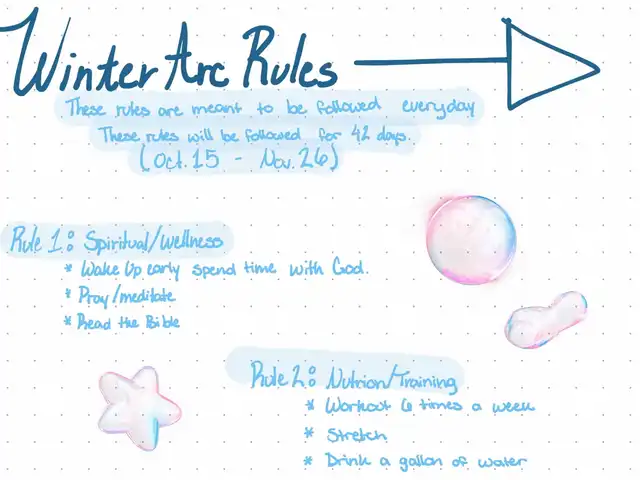 Winter Arc Rules
These rules are meant to be followed everyday
These rules will be followed for 42 days.
(Oct. 15 - Nov. 26)
Rule 1: Spiritual/wellness
* Wake Up early spend time with God.
* Pray/meditate
* Read the Bible
Rule 2: Nutrion/Training
* Workout 6 times a week
* Stretch
* Drink a gallon of water